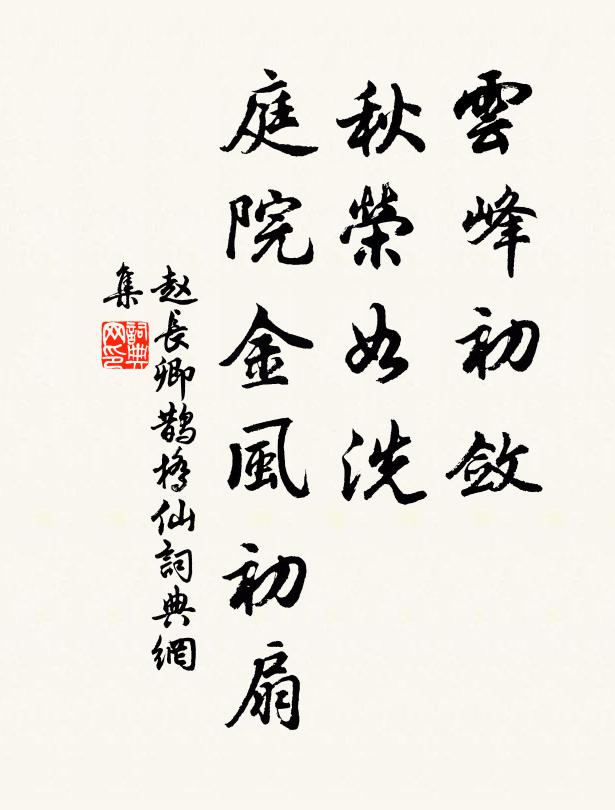 雲峰初斂
秋榮如洗
庭院金風初扇
赵長卿鵲橋仙詞典網
集
詞典
网印